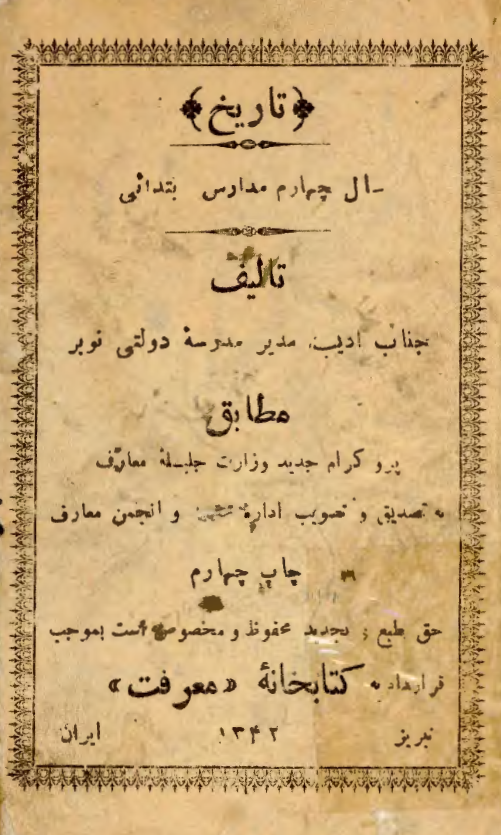 ﴿تاریخ﴾
سال چهارم مدارس بتدائی
تألیف
جناب ادیب مدیر مدرسهٔ دولتی نوبر
مطابق
پروگرام جدید وزارت جلیلهٔ معارف
به تصدیق و تصویب ادارهٔ و انجمن معارف
چاپ چهارم
حق طبع و تجدید محفوظ و مخصوص است بموجب
قرارداد به کتابخانهٔ «معرفت»
تبریز ۱۳۴۲ ایران